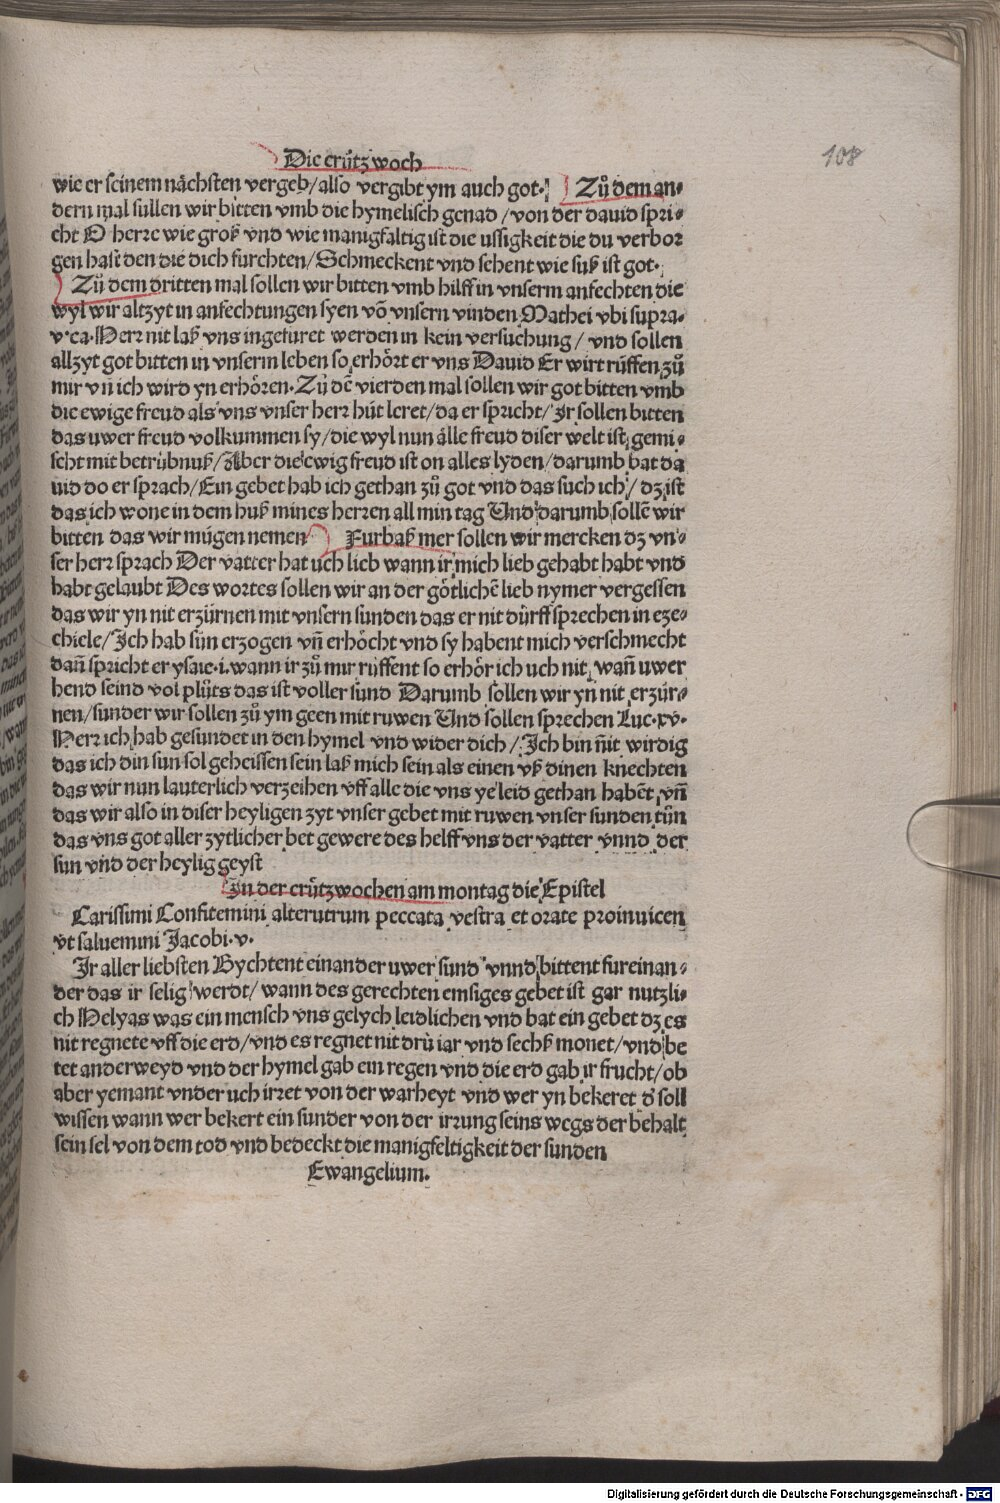 Die crützwoch
108
wie er seinem nächsten vergeb/also vergibt ym auch got· Zů dem an⸗
dern mal süllen wir bitten vmb die hymelisch genad/von der dauid spri⸗
cht O herre wie groß vnd wie manigfaltig ist die ussigkeit die du verbor
gen hast den die dich fürchten/Schmeckent vnd sehent wie süß ist got·
Zů dem dritten mal sollen wir bitten vmb hilff in vnserm anfechten die
wyl wir altzyt in anfechtungen syen võ vnsern vinden Mathei vbi supra⸗
v·ca·Herr nit laß vns ingefüret werden in kein versuchung/vnd sollen
allzyt got bitten in vnserm leben so erhört er vns Dauid Er wirt rüffen zů
mir vñ ich wird yn erhören·Zů dē vierden mal sollen wir got bitten vmb
die ewige freud als vns vnser herr hüt leret/da er spricht/Ir sollen bitten
das uwer freud volkummen sy/die wyl nun älle freud diser welt ist gemi⸗
scht mit betrübnuß/Aber die ewig freud ist on alles lyden/darumb bat da
uid do er sprach/Ein gebet hab ich gethan zů got vnd das such ich/dz ist
das ich wone in dem huß mines herren all min tag Und darumb sollē wir
bitten das wir mügen nemen Furbaß mer sollen wir mercken dz vn⸗
ser herr sprach Der vatter hat uch lieb wann ir mich lieb gehabt habt vnd
habt gelaubt Des wortes sollen wir an der götlichē lieb nymer vergessen
das wir yn nit erzürnen mit vnsern sünden das er nit dürff sprechen in eze⸗
chiele/Ich hab sün erzogen vñ erhöcht vnd sy habent mich verschmecht
dañ spricht er ysaie·i·wann ir zů mir rüffent so erhör ich uch nit wañ uwer
hend seind vol plüts das ist voller sünd Darumb sollen wir yn nit erzür⸗
nen/sunder wir sollen zů ym geen mit ruwen Und sollen sprechen Luc·xv·
Herr ich hab gesundet in den hymel vnd wider dich/Ich bin nit wirdig
das ich din sun sol geheissen sein laß mich sein als einen vß dinen knechten
das wir nun lauterlich verzeihen vff alle die vns ye leid gethan habēt vñ
das wir also in diser heyligen zyt vnser gebet mit ruwen vnser sünden tün
das vns got aller zytlicher bet gewere des helff vns der vatter vnnd der
sun vnd der heylig geyst
In der crützwochen am montag die Epistel
Carissimi Confitemini alterutrum peccata vestra et orate proinuicen
vt saluemini Jacobi·v·
Ir aller liebsten Bychtent einander uwer sünd vnnd bittent füreinan⸗
der das ir selig werdt/wann des gerechten emsiges gebet ist gar nutzli⸗
ch Helyas was ein mensch vns gelych leidlichen vnd bat ein gebet dz es
nit regnete vff die erd/vnd es regnet nit drü iar vnd sechß monet/vnd be
tet anderweyd vnd der hymel gab ein regen vnd die erd gab ir frucht/ob
aber yemant vnder uch irret von der warheyt vnd wer yn bekeret d̕ soll
wissen wann wer bekert ein sünder von der irrung seins wegs der behalt
sein sel von dem tod vnd bedeckt die manigfeltigkeit der sünden
Ewangelium·
Digitalisierung gefördert durch die Deutsche Forschungsgemeinschaft - DFG